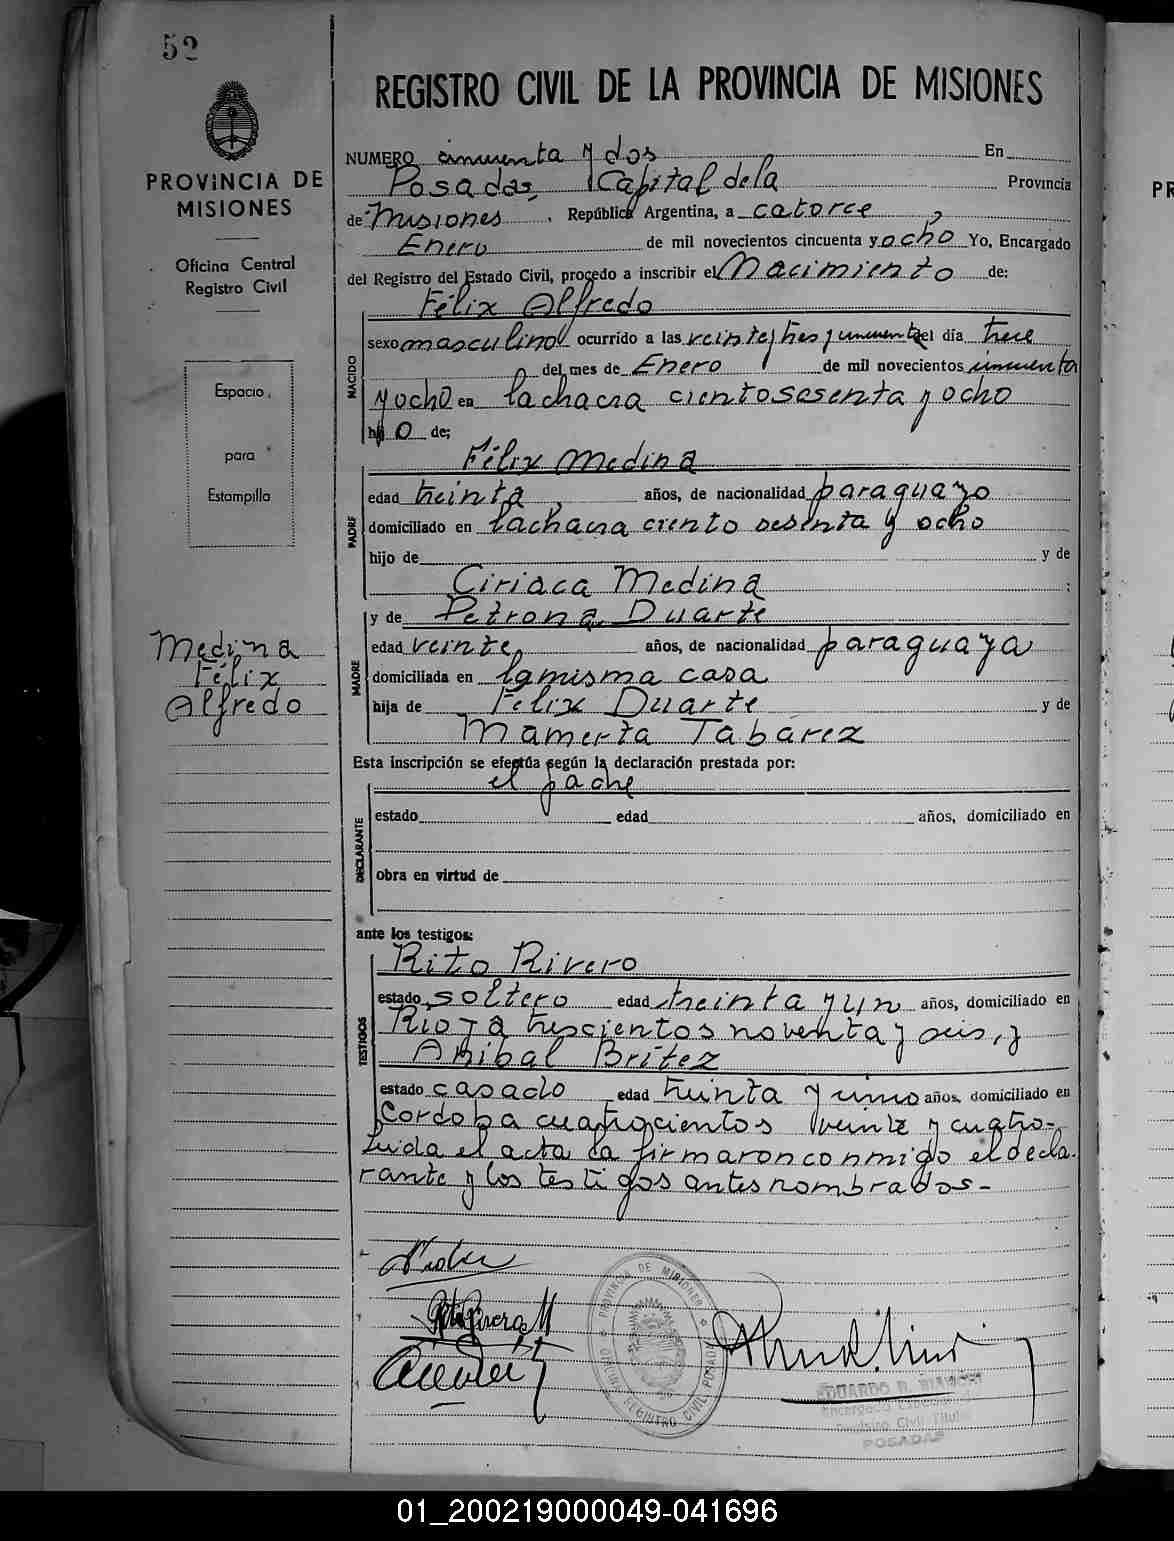 52
PROVINCIA DE
MISIONES
Oficina Central
Registro Civil
Espacio
para
Estampilla
Medina
Félix
Alfredo
REGISTRO CIVIL DE LA PROVINCIA DE MISIONES
NUMERO cincuenta y dos En
Posadas, Capital de la Provincia
de Misiones, República Argentina, a catorce,
Enero de mil novecientos cincuenta y ocho Yo, Encargado
del Registro del Estado Civil, procedo a inscribir el Nacimiento de:
NACIDO
Félix Alfredo
sexo masculino ocurrido a las veinte y tres y cincuenta del día trece
del mes de Enero de mil novecientos cincuenta
y ocho en la chacra ciento sesenta y ocho
hijo de;
PADRE
Félix Medina
edad treinta, años, de nacionalidad paraguayo
domiciliado en la chacra ciento sesenta y ocho
hijo de y de
Ciriaca Medina ;
MADRE
y de Petrona Duarte
edad veinte, años, de nacionalidad paraguaya
domiciliada en la misma casa
hija de Felix Duarte y de
Mamerta Tabarez
Esta inscripción se efectúa según la declaración prestada por:
DECLARANTE
el padre
estado edad años, domiciliado en
obra en virtud de
ante los testigos:
TESTIGOS
Rito Rivero
estado soltero edad treinta y un años, domiciliado en
Rioja trescientos noventa y seis, y
Anibal Britez
estado casado edad treinta y uno años, domiciliado en
Cordoba cuatrocientos veinte y cuatro-
Leida el acta la firmaron conmigo el decla-
rante y los testigos antes nombrados-
PROVINCIA DE MISIONES
REGISTRO CIVIL POSADAS
EDUARDO R.
POSADAS
01_200219000049-041696